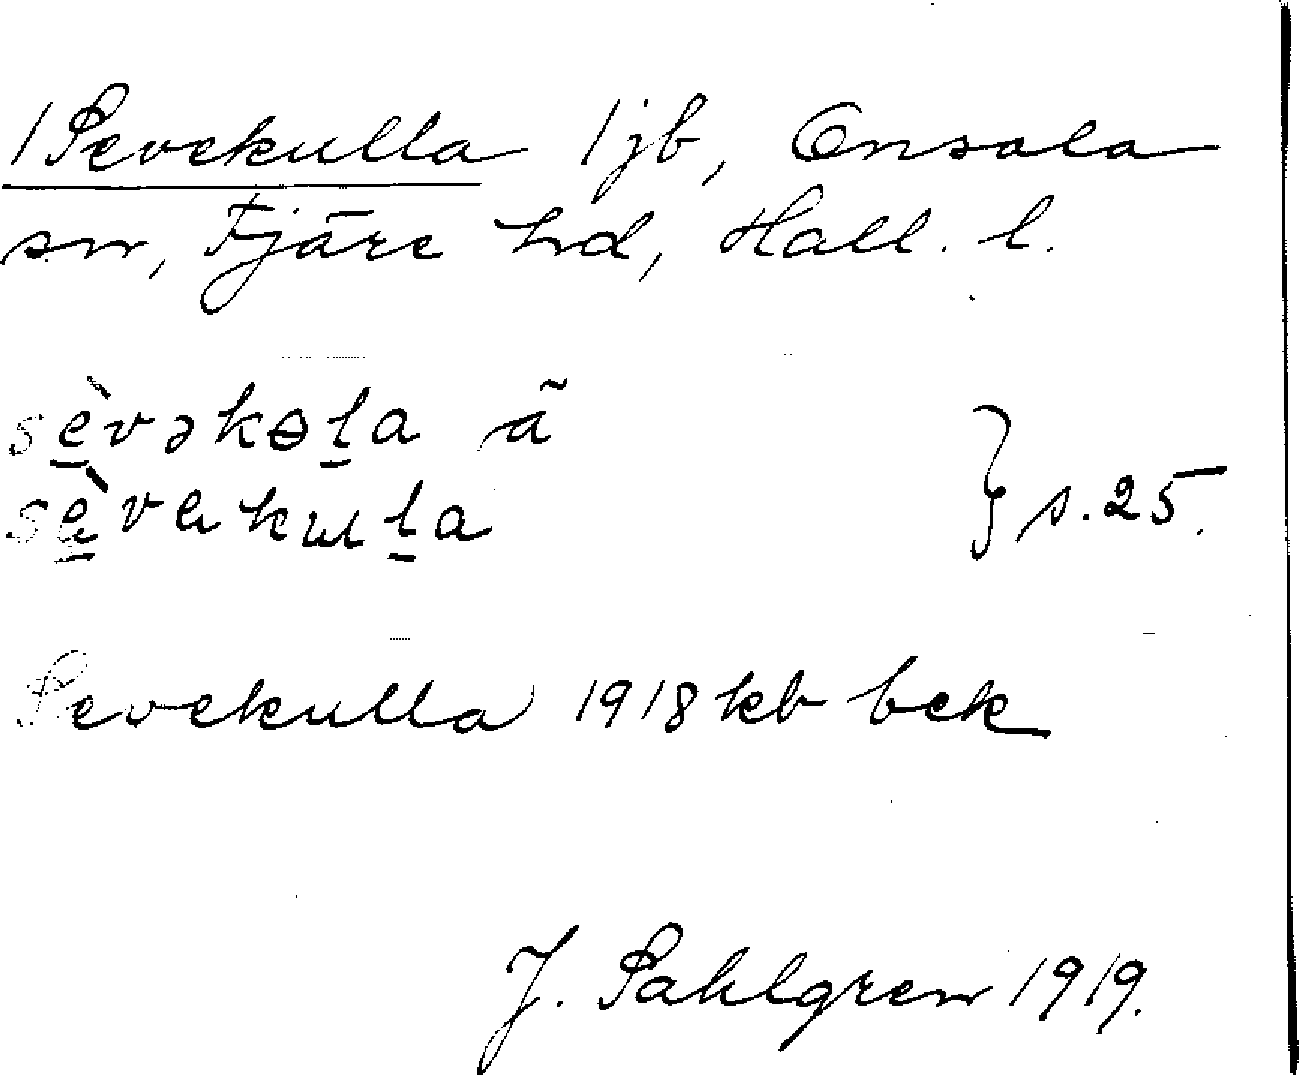 1 Sevekulla 1 jb, Onsala
sn, Fjäre hd, Hall. l.
sèvəkɵla ã
sèvekulla } s. 25.
Sevekulla 1918 kb bek
J. Sahlgren 1919.